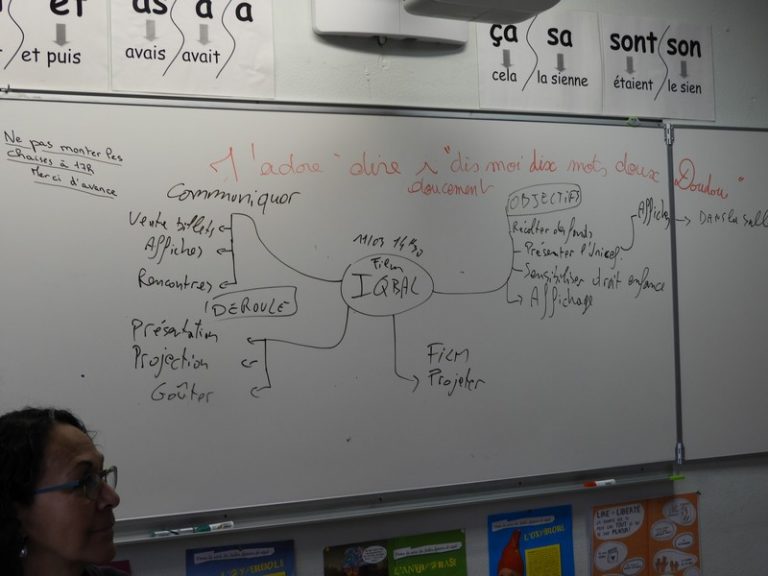 et
et puis
as
avais
a
avait
a
ça
cela
sa
la sienne
sont
étaient
son
le sien
Ne pas monter les
chaises à 17h
Merci d'avance
J'adore dire "dis moi dix mots doux Doudou"
doucement
Communiquer
Vente billets
Affiches
Rencontres
DÉROULÉ
Présentation
Projection
Goûter
11/03 14h30
Film
IQBAL
Film
Projeter
OBJECTIFS
Récolter des fonds
Présenter l'Unicef
Sensibiliser droit enfance
Affichage
Affiches
DANS la salle
LIRE LIBERTÉ